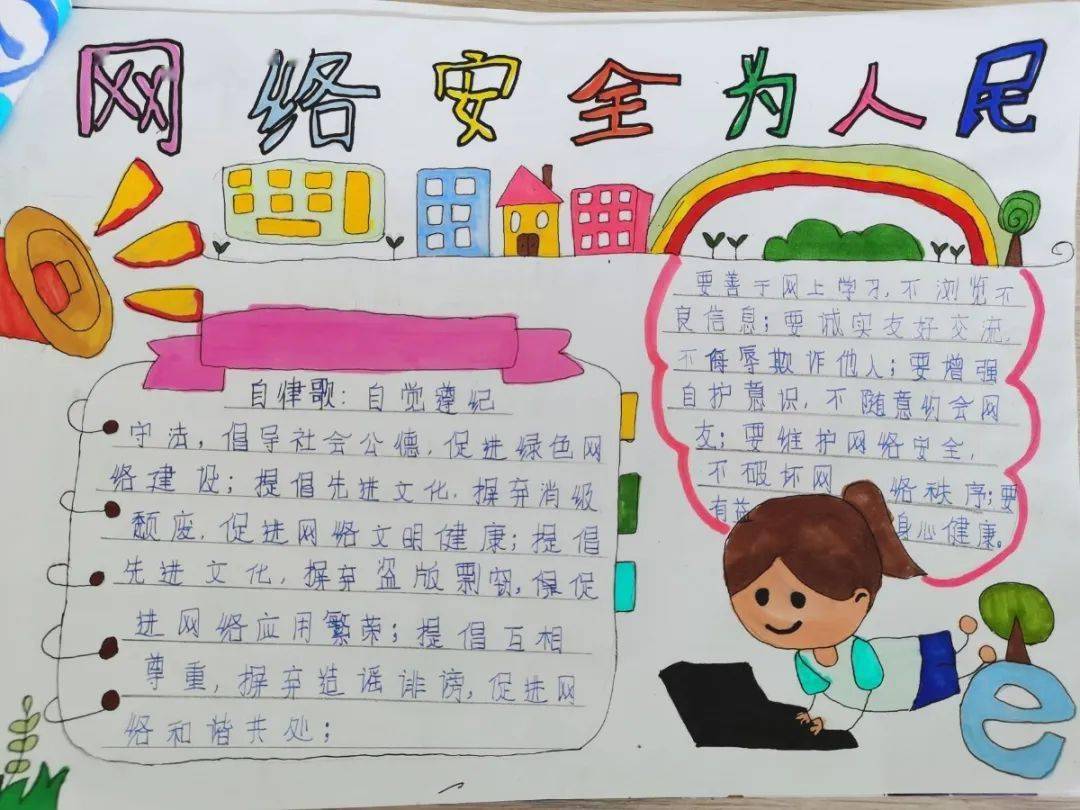 网络安全为人民
自律歌：自觉遵纪
守法，倡导社会公德，促进绿色网
络建设；提倡先进文化，摒弃消级
颓废，促进网络文明健康；提倡
先进文化，摒弃盗版剽窃，保促
进网络应用繁荣；提倡互相
尊重，摒弃造谣诽谤，促进网
络和谐共处；
要善于网上学习，不浏览不
良信息；要诚实友好交流，
不侮辱欺诈他人；要增强
自护意识，不随意约会网
友；要维护网络安全，
不破坏网络秩序；要
有益身心健康。
e